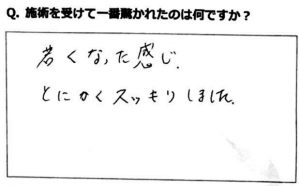 Q. 施術を受けて一番驚かれたのは何ですか？
若くなった感じ.
とにかくスッキリしました.